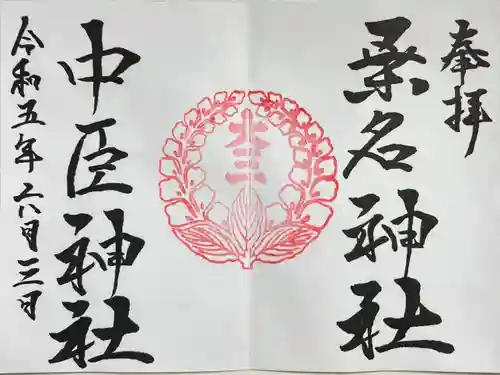 奉拝
桑名神社
本三
中臣神社
令和五年六月三日